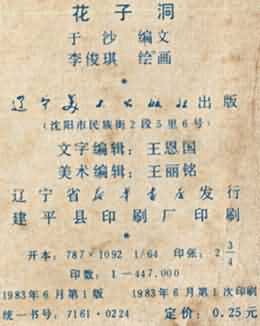 花子洞
于沙 编文
李俊琪 绘画
辽宁美术出版社出版
(沈阳市民族街2段5里6号)
文字编辑：王恩国
美术编辑：王丽铭
辽宁省新华书店发行
建平县印刷厂印刷
开本：787×1092 1/64 印张：2 3/4
印数：1—447.000
1983年6月第1版 1983年6月第1次印刷
统一书号：7161·0224 定价：0.25元